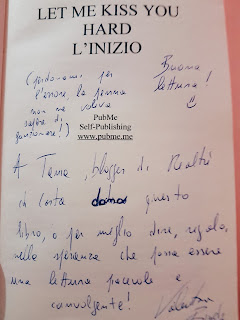 LET ME KISS YOU
HARD
L'INIZIO
(perdonami per
l'errore, la penna
non ne voleva
sapere di
funzionare!)
Buona
lettura!
PubMe
Self-Publishing
www.pubme.me
A Tania, blogger di Realtà
di Carta questo
libro, o per meglio dire, regalo,
nella speranza che possa essere
una lettura piacevole e
coinvolgente!